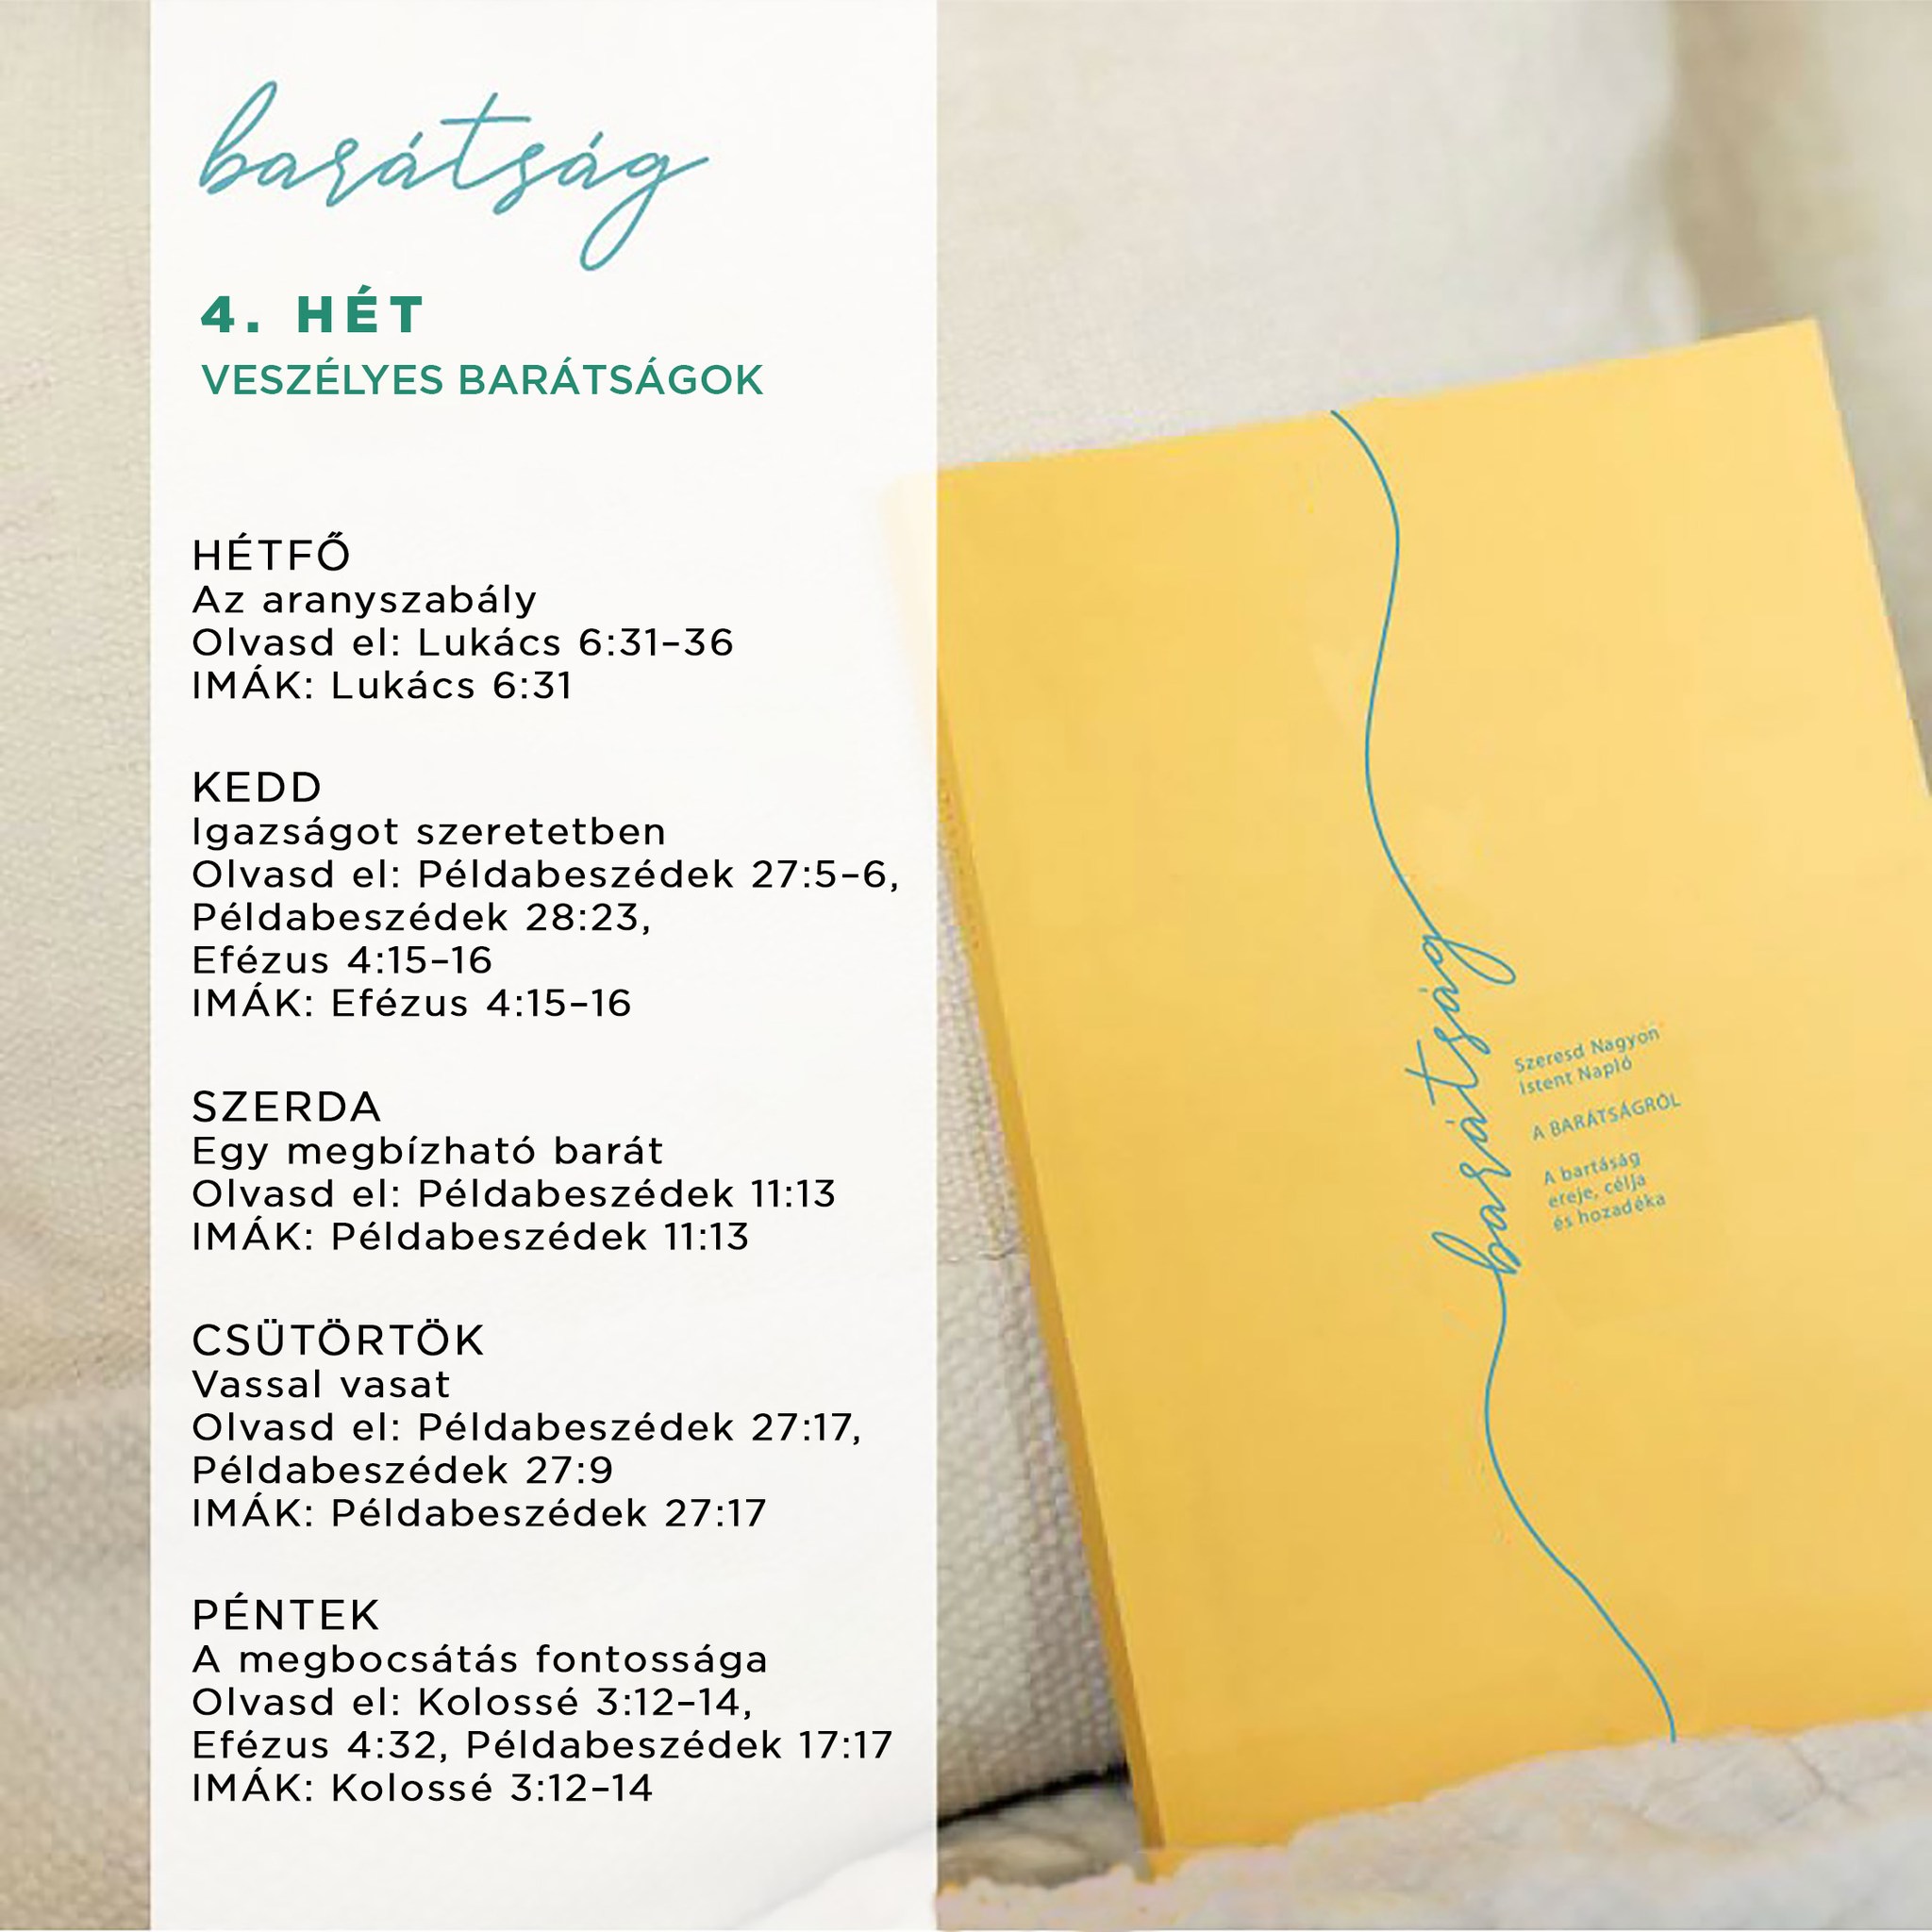 barátság
4. HÉT
VESZÉLYES BARÁTSÁGOK
HÉTFŐ
Az aranyszabály
Olvasd el: Lukács 6:31–36
IMÁK: Lukács 6:31
KEDD
Igazságot szeretetben
Olvasd el: Példabeszédek 27:5–6,
Példabeszédek 28:23,
Efézus 4:15–16
IMÁK: Efézus 4:15–16
SZERDA
Egy megbízható barát
Olvasd el: Példabeszédek 11:13
IMÁK: Példabeszédek 11:13
CSÜTÖRTÖK
Vassal vasat
Olvasd el: Példabeszédek 27:17,
Példabeszédek 27:9
IMÁK: Példabeszédek 27:17
PÉNTEK
A megbocsátás fontossága
Olvasd el: Kolossé 3:12–14,
Efézus 4:32, Példabeszédek 17:17
IMÁK: Kolossé 3:12–14
barátság
Szeresd Nagyon
Istent Napló
A BARÁTSÁGRÓL
A bartáság
ereje, célja
és hozadéka